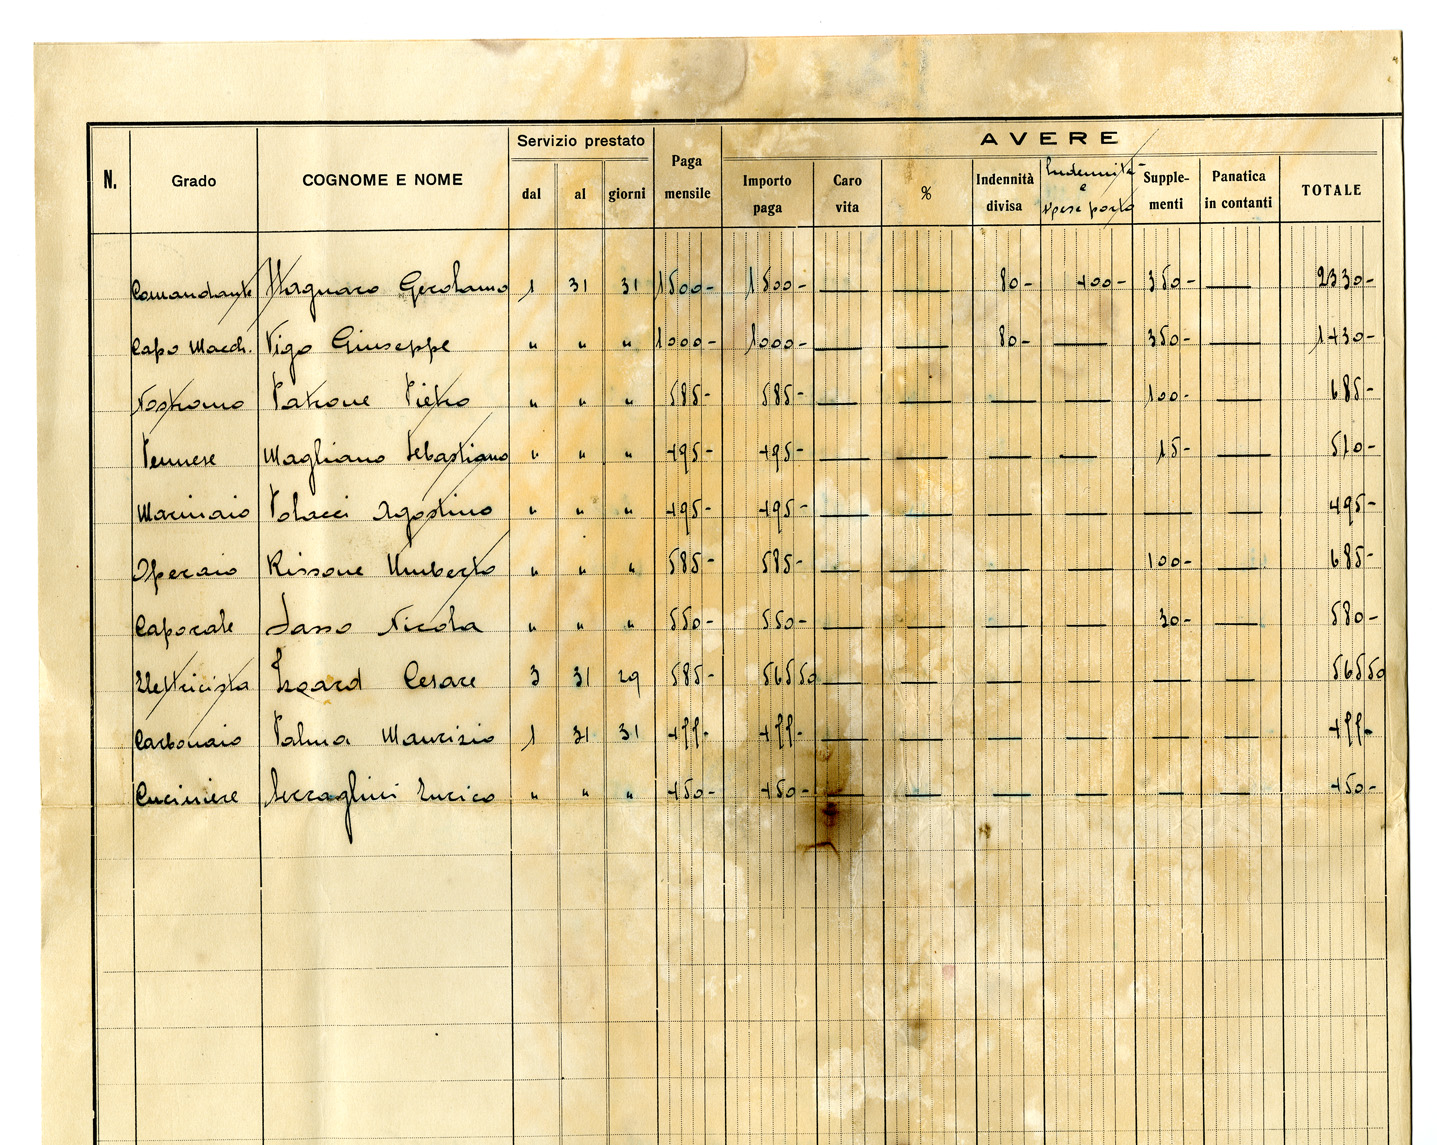 Servizio prestato AVERE
N. Grado COGNOME E NOME dal al giorni Paga mensile Importo paga Caro vita % Indennità divisa Indennità e spese posta Supplementi Panatica in contanti TOTALE
Comandante Stagnaro Gerolamo 1 31 31 1500- 1500- — — 80- 400- 350- — 2330-
Capo Macch. Vigo Giuseppe " " " 1000- 1000- — — 80- — 350- — 1430-
Nostromo Patrone Pietro " " " 585- 585- — — — — 100- — 685-
Tennese Magliano Sebastiano " " " 495- 495- — — — — 15- — 510-
Marinaio Polacci Agostino " " " 495- 495- — — — — — — 495-
Operaio Rissone Umberto " " " 585- 585- — — — — 100- — 685-
Caporale Sasso Nicola " " " 550- 550- — — — — 30- — 580-
Elettricista Isoard Cesare 3 31 29 585- 565 50 — — — — — — 565 50
Carbonaio Palma Maurizio 1 31 31 477- 477- — — — — — — 477-
Cuciniere Serraglini Enrico " " " 450- 450- — — — — — — 450-